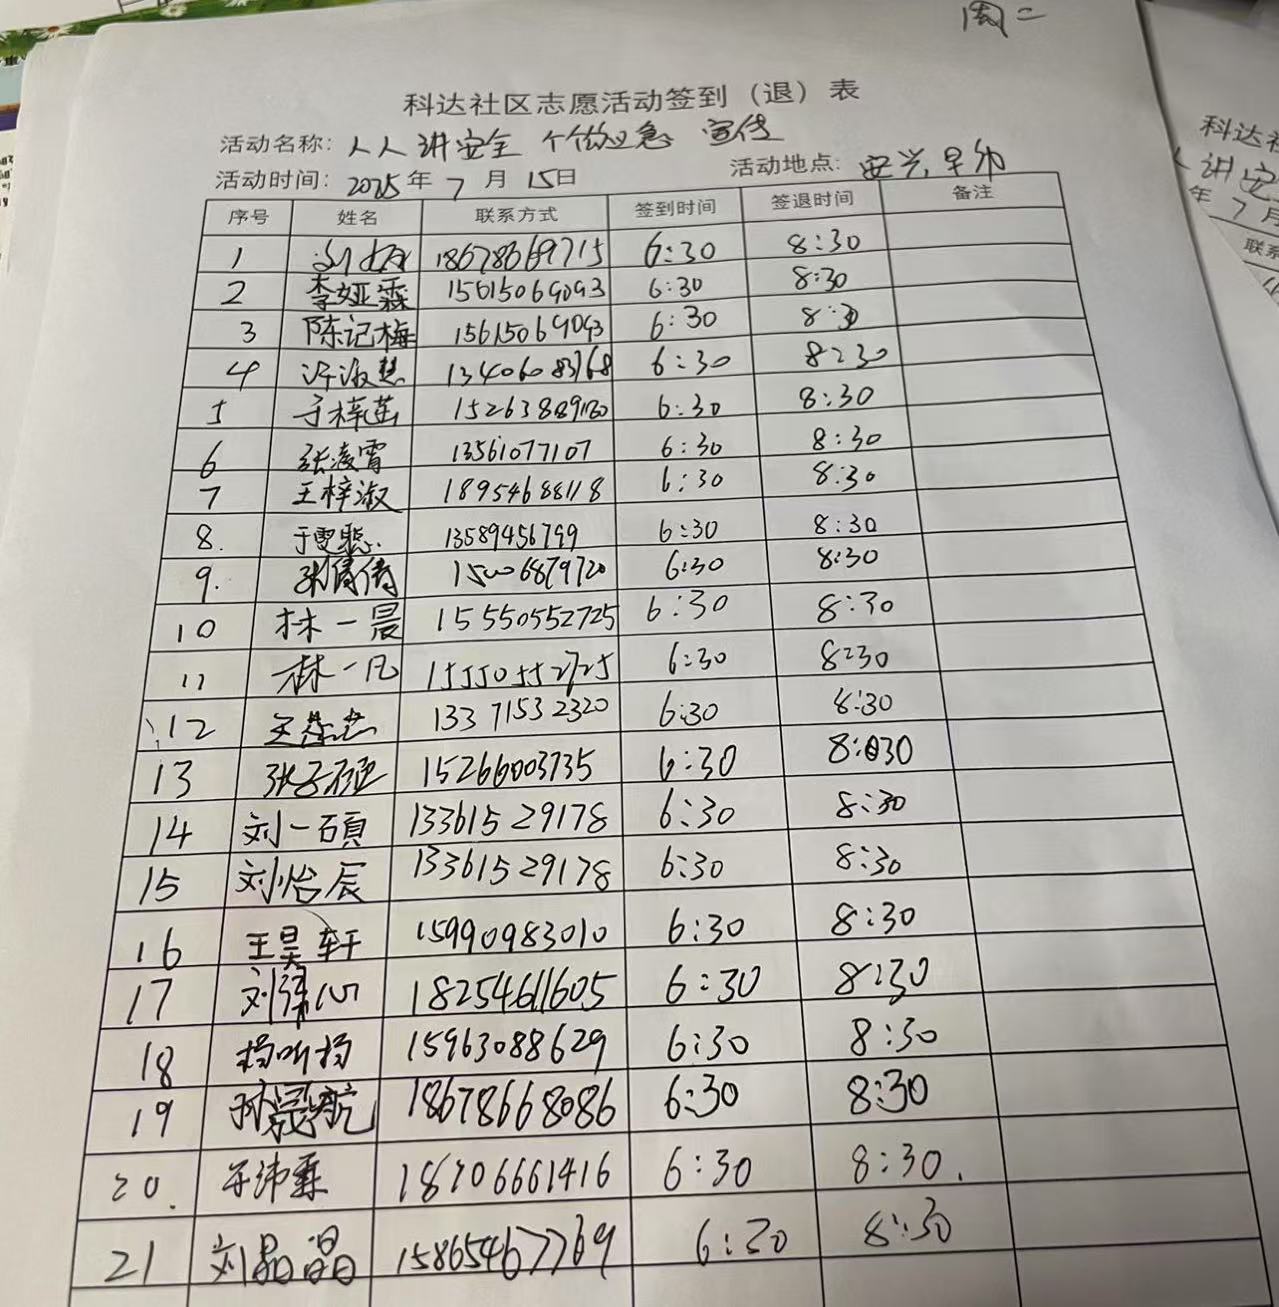 周二
科达社区志愿活动签到（退）表
活动名称：人人讲安全 个个会应急 宣传
活动时间：2025年7月15日 活动地点：安兴早市
序号 姓名 联系方式 签到时间 签退时间 备注
1 刘 18678669715 6:30 8:30
2 李娅霖 15615069093 6:30 8:30
3 陈记梅 15615069093 6:30 8:30
4 许淑慧 13406083768 6:30 8:30
5 于梓茁 6:30 8:30
6 张凌霄 13561077107 6:30 8:30
7 王梓淑 18954688118 6:30 8:30
8. 于雯 13589456799 6:30 8:30
9. 张倩倩 15006879720 6:30 8:30
10 林一晨 15550552725 6:30 8:30
11 林一凡 15550552725 6:30 8:30
12 13371532320 6:30 8:30
13 张子硕 15266003735 6:30 8:030
14 刘一硕 13361529178 6:30 8:30
15 刘怡辰 13361529178 6:30 8:30
16 王昊轩 15990983010 6:30 8:30
17 刘 心 18254611605 6:30 8:30
18 杨昕杨 15963088629 6:30 8:30
19 孙 航 18678668086 6:30 8:30
20. 于沛霖 18706661416 6:30 8:30.
21 刘晶晶 15865467769 6:30 8:30
科达社
人讲安
年7月
联系